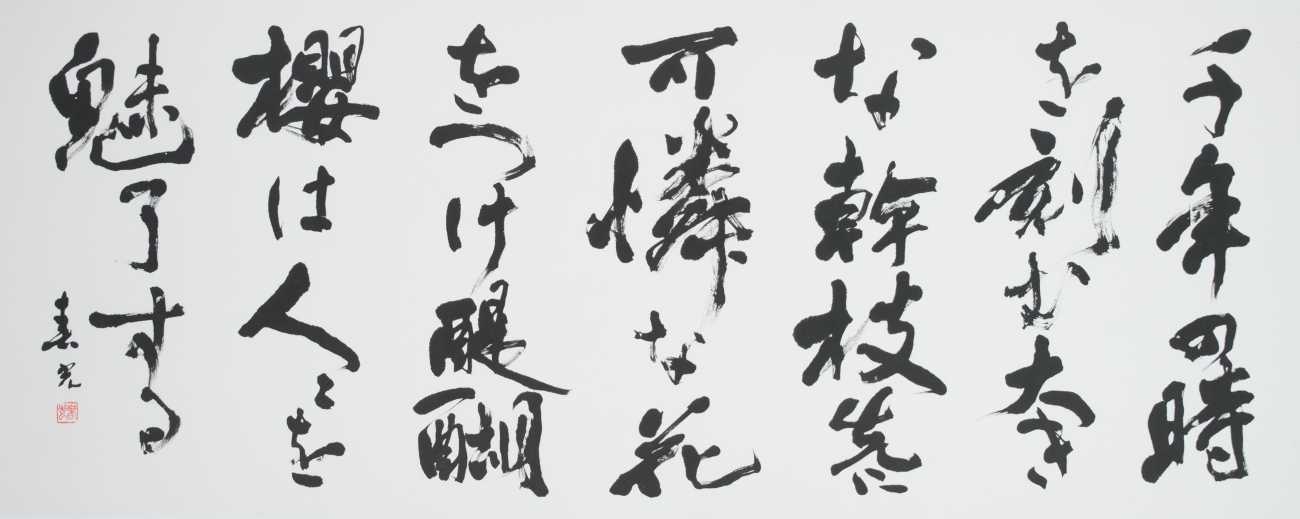 千年の時
を刻む大き
な幹枝先に
可憐な花
をつけ醍醐
櫻は人々を
魅了する